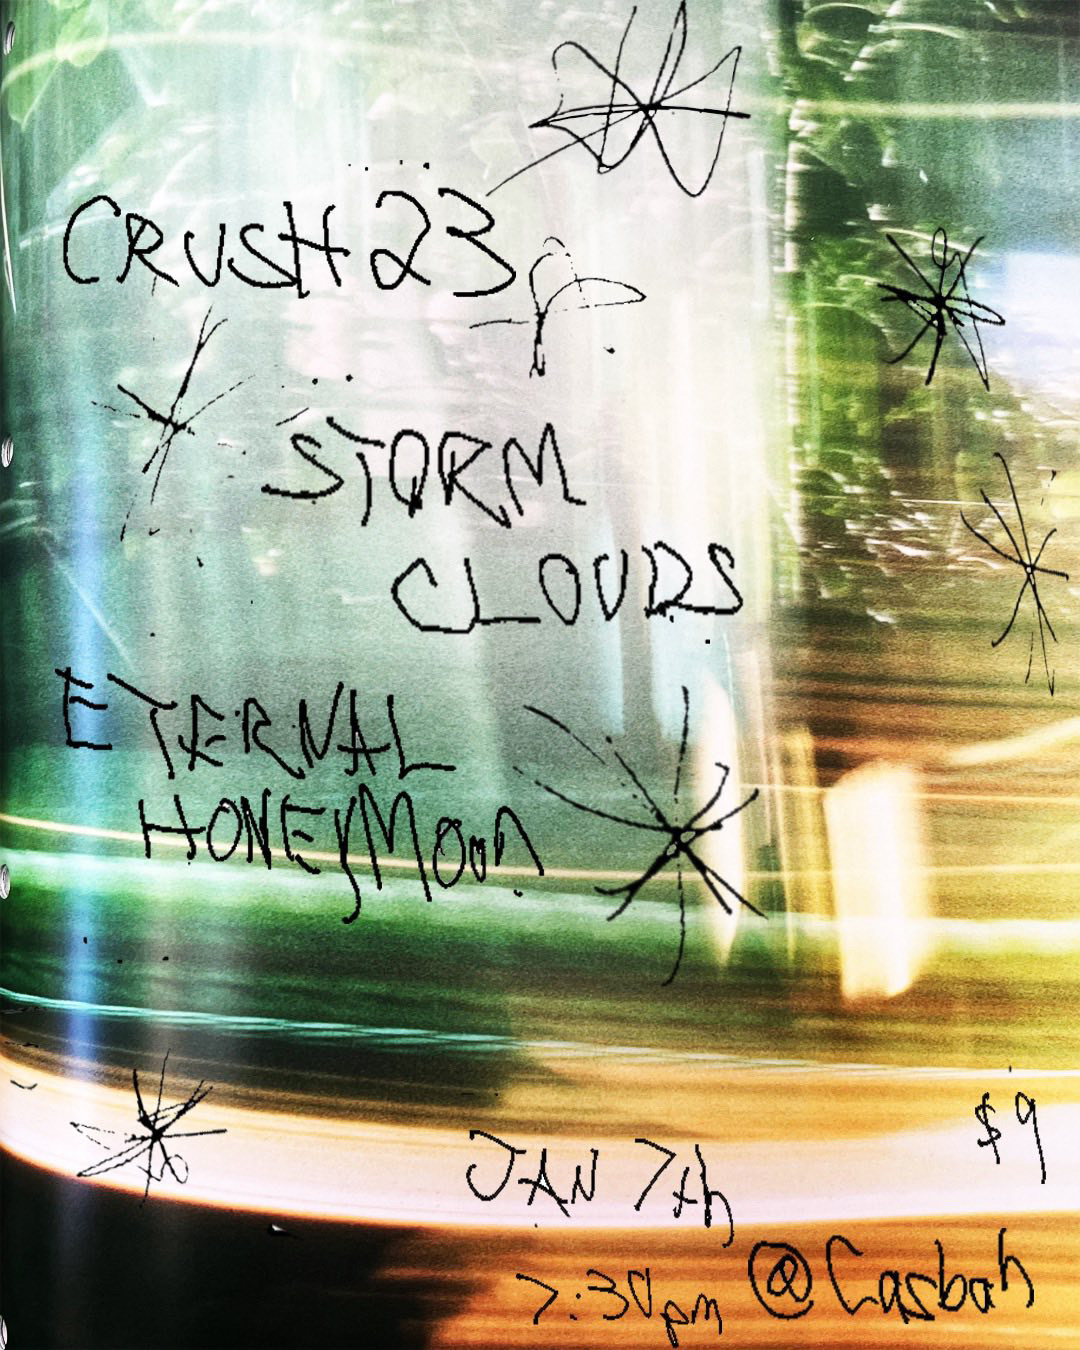 CRUSH 23
STORM
CLOUDS
ETERNAL
HONEYMOON
$9
JAN 7th
7:30pm @Casbah